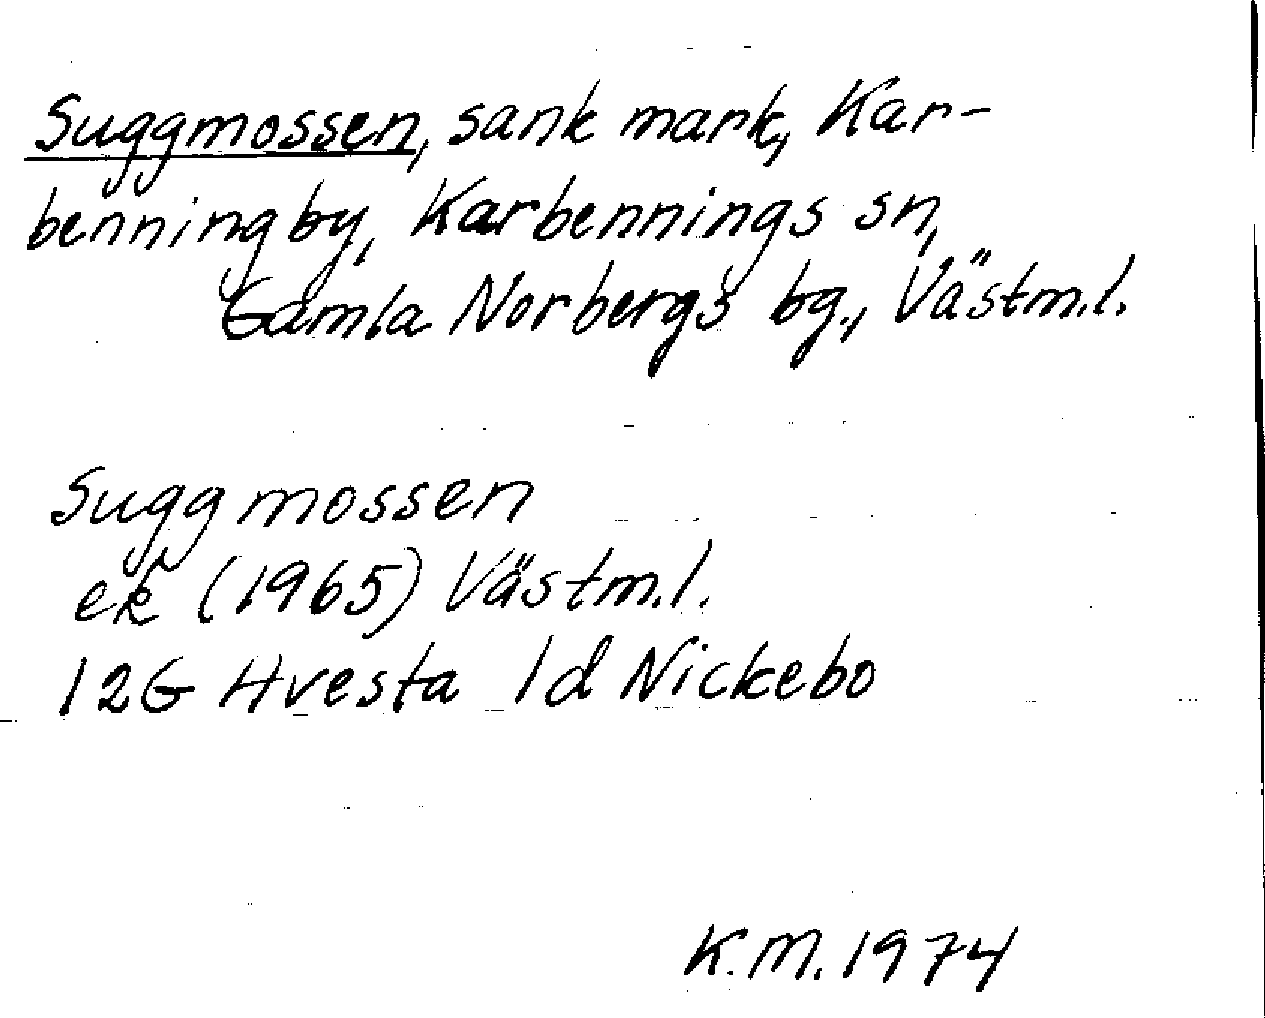 Suggmossen, sank mark, Kar-
benning by, Karbennings sn,
Gamla Norbergs bg., Västm.l.
Suggmossen
ek (1965) Västm.l.
12G Avesta 1d Nickebo
K.M. 1974